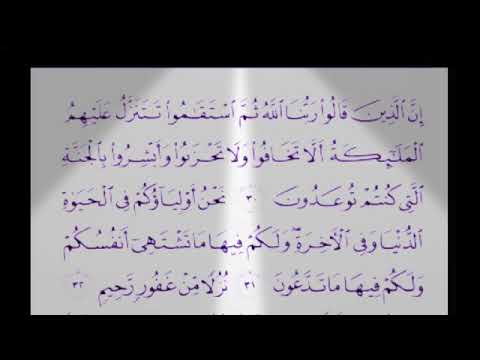 إِنَّ ٱلَّذِينَ قَالُوا۟ رَبُّنَا ٱللَّهُ ثُمَّ ٱسْتَقَـٰمُوا۟ تَتَنَزَّلُ عَلَيْهِمُ
ٱلْمَلَـٰٓئِكَةُ أَلَّا تَخَافُوا۟ وَلَا تَحْزَنُوا۟ وَأَبْشِرُوا۟ بِٱلْجَنَّةِ
ٱلَّتِى كُنتُمْ تُوعَدُونَ ٣٠ نَحْنُ أَوْلِيَآؤُكُمْ فِى ٱلْحَيَوٰةِ
ٱلدُّنْيَا وَفِى ٱلْـَٔاخِرَةِ ۖ وَلَكُمْ فِيهَا مَا تَشْتَهِىٓ أَنفُسُكُمْ
وَلَكُمْ فِيهَا مَا تَدَّعُونَ ٣١ نُزُلًا مِّنْ غَفُورٍ رَّحِيمٍ ٣٢